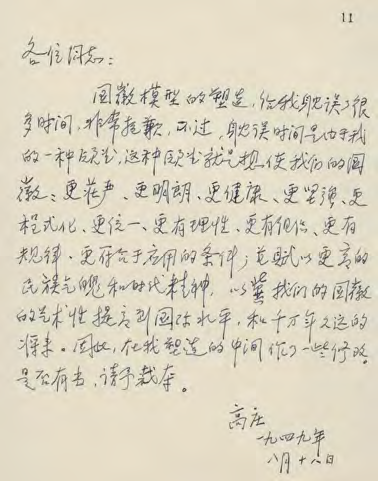 11
各位同志：
国徽模型的塑造，给我耽误了很
多时间，非常抱歉，不过，耽误时间是由于我
的一种愿望，这种愿望就是想使我们的国
徽：更庄严、更明朗、更健康、更坚强、更
程式化、更统一、更有理性、更有组织、更有
规律、更符合于应用的条件；并赋以更高的
民族气魄和时代精神，以冀我们的国徽
的艺术性提高到国际水平，和千万年久远的
将来。因此，在我塑造的中间作了一些修改。
是否有当，请予裁夺。
高庄
一九四九年
八月十八日